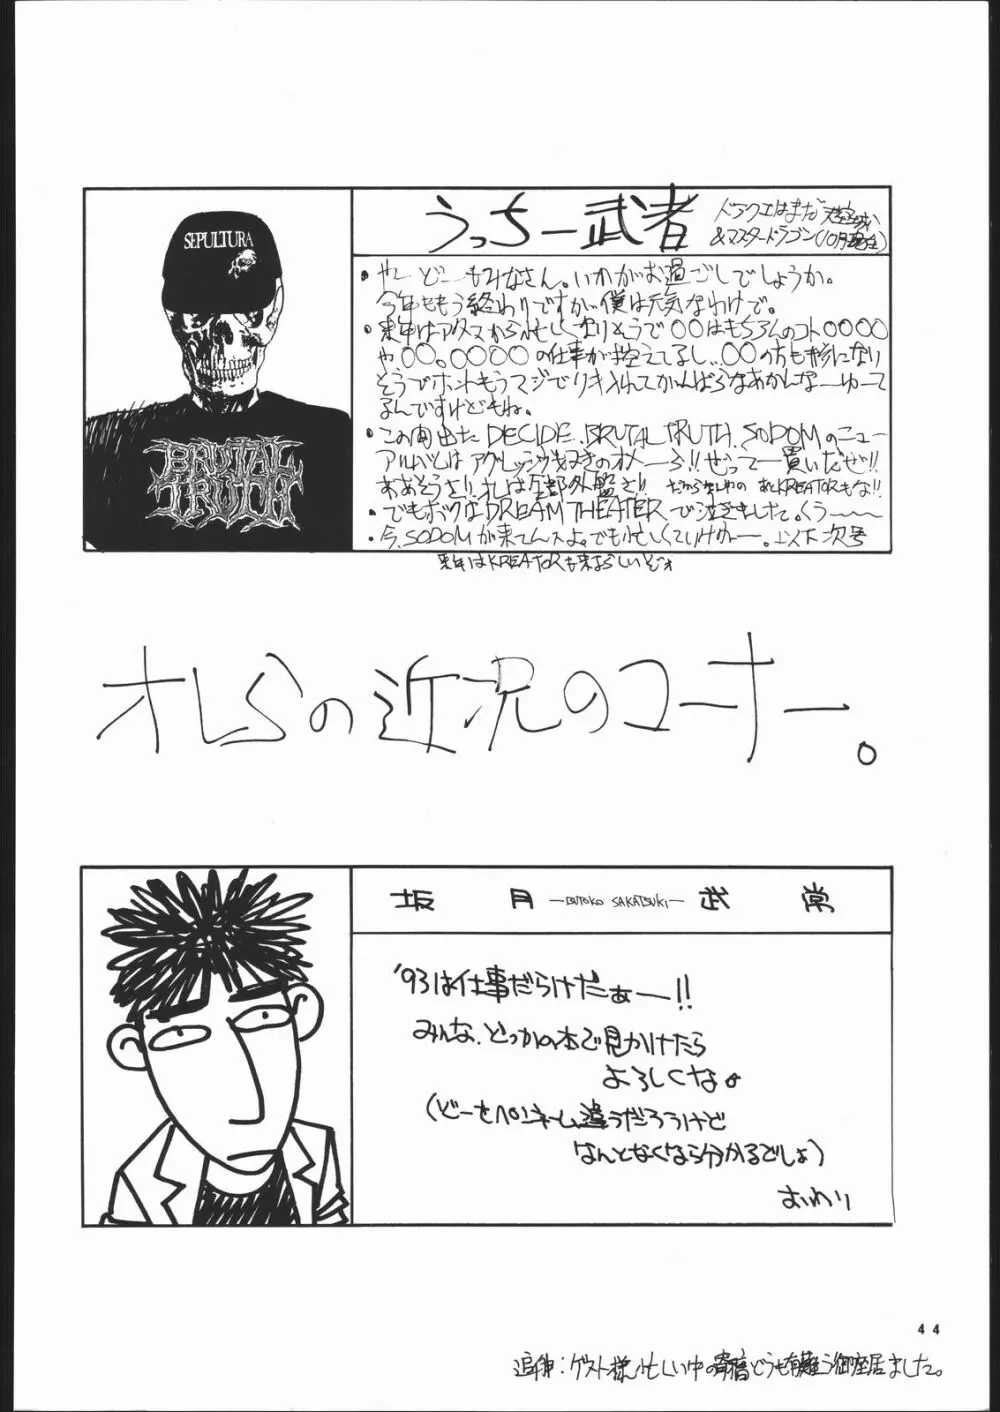 SEPULTURA
BRUTAL
TRUTH
うっちー武者
ドラクエはまだ天空城
&マスタードラゴン(10月現在)
・やーどーもみなさん。いかがお過ごしでしょうか。
今年ももう終わりですが、僕は元気なわけで。
・来年はアタマから忙しくなりそうで○○はもちろんのコト○○○○
や○○。○○○○の仕事が控えてるし…○○の方も
そうでホントもうマジでリキ入れてかんばらなあかんなーゆーて
るんですけどもね。
・この間出たDECIDE、BRUTAL TRUTH、SODOMのニュー
アルバムはアグレッシヴ好きのオメーら!!ぜってー買いだぜ!!
ああそうさ!!オレは全部外盤さ!! あとKREATORもな!!
・でもボクはDREAM THEATERで泣きました。くうーーー
・今、SODOMが来てんスよ。でも忙しくていけねー。以下次号
来年はKREATORも来るらしいぞォ
オレらの近況のコーナー。
坂月 —BUTOKO SAKATSUKI— 武常
'93は仕事だらけだぁー!!
みんな、どっかの本で見かけたら
よろしくな。
(どーせペンネーム違うだろうけど
なんとなくなら分かるでしょ)
おわり
44
追伸:ゲスト様、忙しい中の寄稿どうも有難う御座居ました。